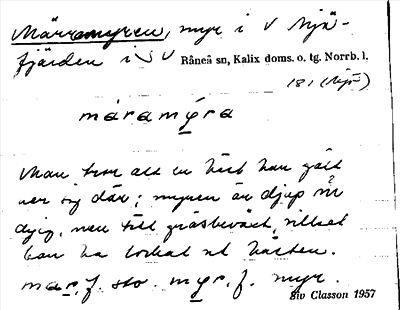 Märramyren, myr i V Njå-
fjärden i SV
Råneå sn, Kalix doms. o. tg. Norrb. l.
181 (Njå)
máramýra
Man tror att en häst har gått
ner sig där; myren är djup
dyig, men tätt gräsbeväxt, vilket
kan ha lockat ut hästen.
mar, f. sto. myr, f. myr.
Siv Classon 1957